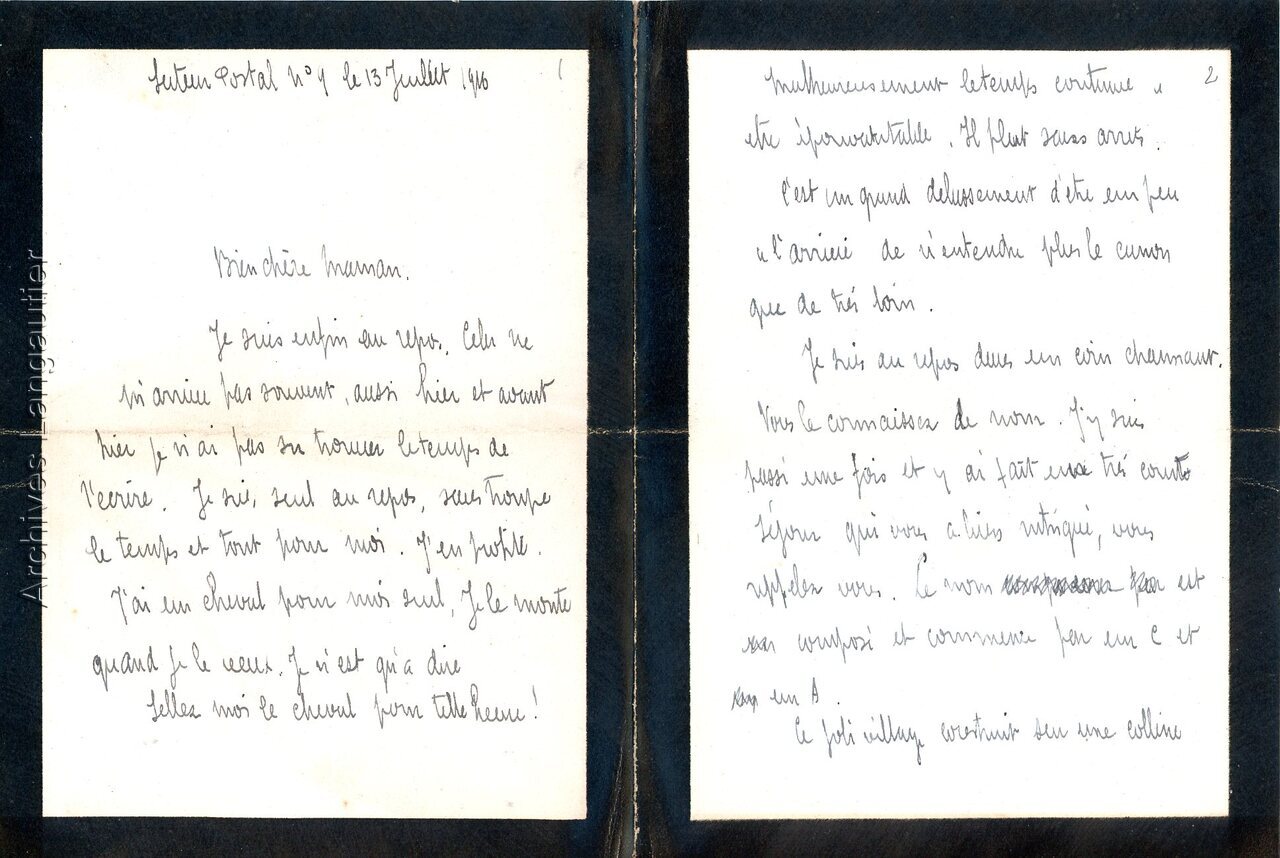 Secteur Postal N° 9 le 13 Juillet 1916
1
Bien chère Maman.
Je suis enfin au repos. Cela ne
m'arrive pas souvent, aussi hier et avant
hier je n'ai pas su trouver le temps de
t'ecrire. Je suis, seul au repos, sans troupe
le temps et tout pour moi. J'en profite.
J'ai un cheval pour moi seul, Je le monte
quand je le veux. Je n'est qu'a dire
Sellez moi le cheval pour telle heure!
2
Malheureusement le temps continue a
etre épouvantable. Il pleut sans arret.
C'est un grand delassement d'être un peu
a l'arrière de n'entendre plus le canon
que de très loin.
Je suis au repos dans un coin charmant.
Vous le connaissez de nom. J'y suis
passé une fois et y ai fait un très court
séjour qui vous a bien intrigué, vous
rappelez vous. Le nom est
composé et commence par un C et
un A.
Ce joli village construit sur une colline
Archives Langautier